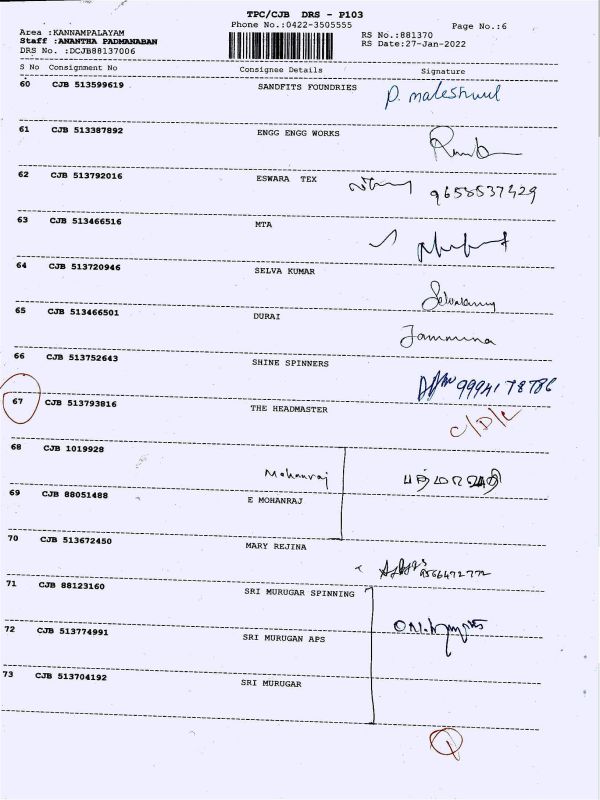 TPC/CJB DRS - P103
Phone No.:0422-3505555
Page No.:6
Area :KANNAMPALAYAM
Staff :ANANTHA PADMANABAN
DRS No. :DCJB88137006
RS No.:881370
RS Date:27-Jan-2022
S No Consignment No Consignee Details Signature
60 CJB 513599619 SANDFITS FOUNDRIES
61 CJB 513387892 ENGG ENGG WORKS
62 CJB 513792016 ESWARA TEX 9658537429
63 CJB 513466516 MTA
64 CJB 513720946 SELVA KUMAR
65 CJB 513466501 DURAI
66 CJB 513752643 SHINE SPINNERS
9994178786
67 CJB 513793816 THE HEADMASTER
C/D/L
68 CJB 1019928
Mohanraj
69 CJB 88051488 E MOHANRAJ
70 CJB 513672450 MARY REJINA
9566472772
71 CJB 88123160 SRI MURUGAR SPINNING
72 CJB 513774991 SRI MURUGAN APS
73 CJB 513704192 SRI MURUGAR